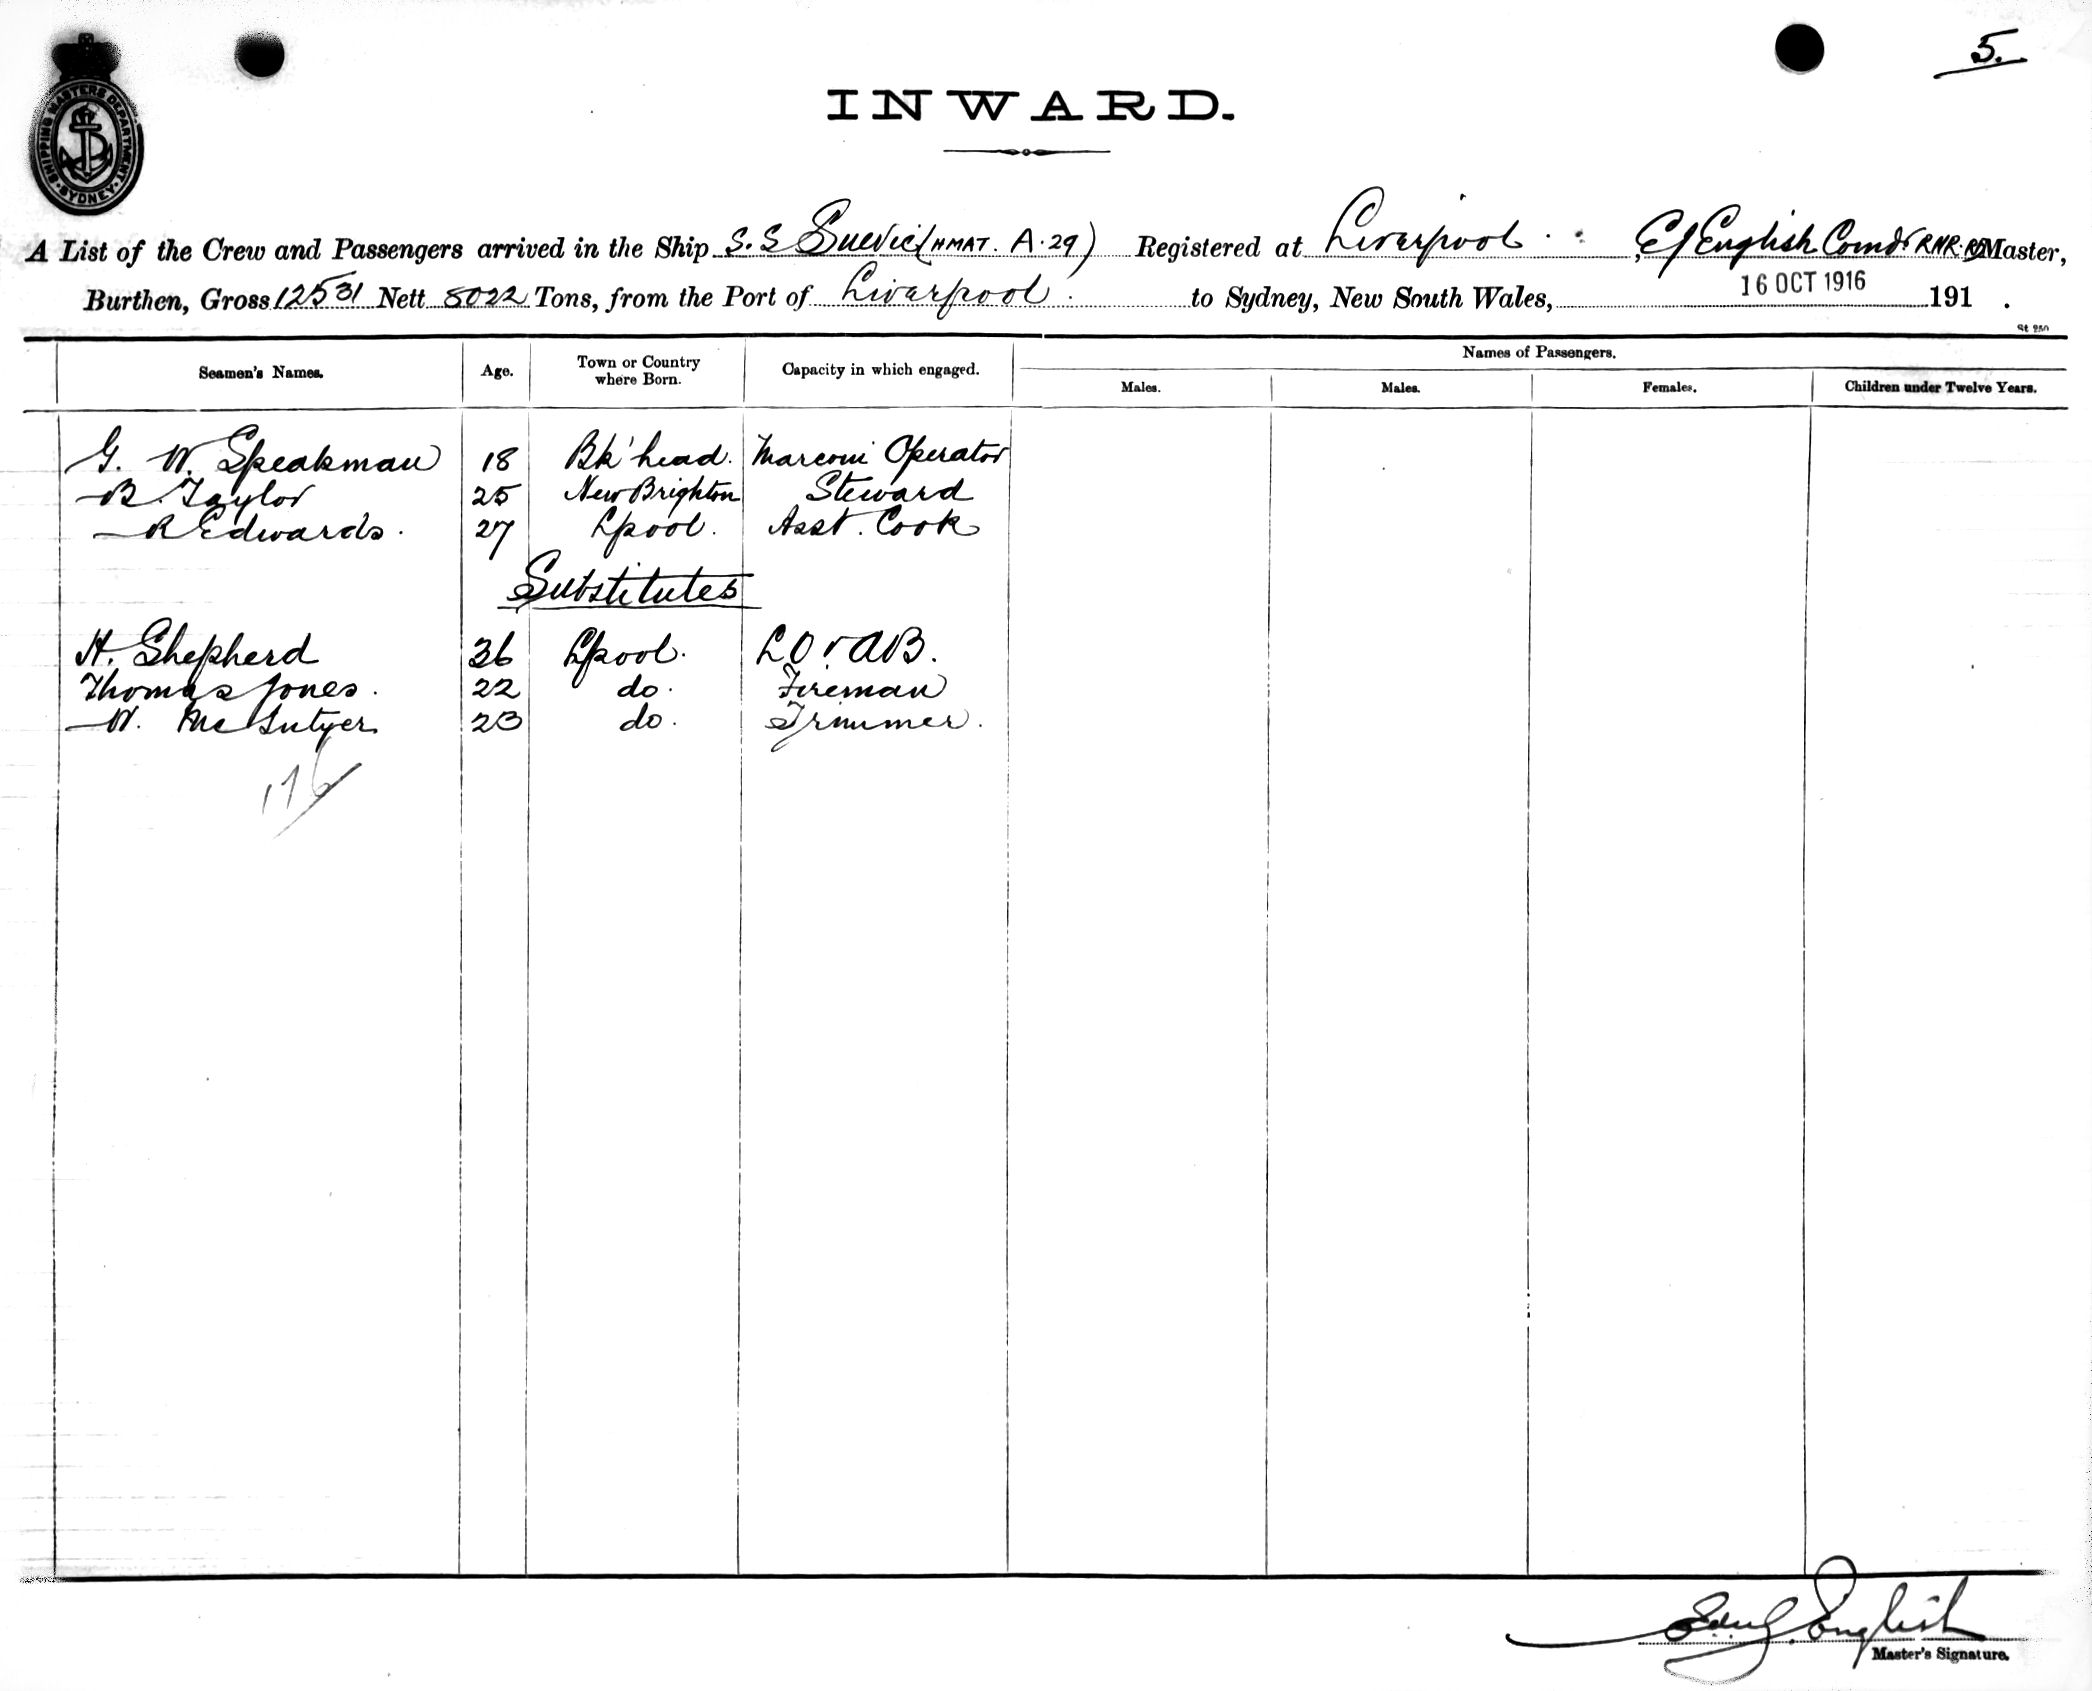 5.
SHIPPING MASTERS DEPARTMENT
SYDNEY
INWARD.
A List of the Crew and Passengers arrived in the Ship S.S Suevic (HMAT. A.29) Registered at Liverpool, E J English Comdr RNR. RD Master,
Burthen, Gross 12531 Nett 8022 Tons, from the Port of Liverpool. to Sydney, New South Wales, 16 OCT 1916 191 .
St 250
Names of Passengers.
Seamen's Names. Age. Town or Country where Born. Capacity in which engaged. Males. Males. Females. Children under Twelve Years.
G. W. Speakman 18 Bk'head. Marconi Operator
B. Taylor 25 New Brighton Steward
R Edwards. 27 Lpool. Asst. Cook
Substitutes
H. Shepherd 36 Lpool. LO & AB.
Thomas Jones. 22 do. Fireman
W. McIntyer 23 do. Trimmer.
176
English
Master's Signature.